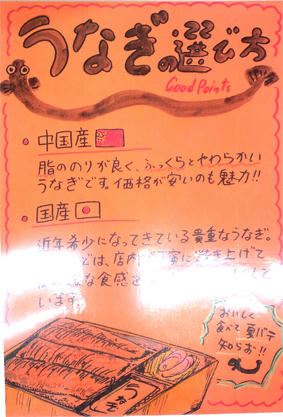 うなぎの選び方
Good Points
・中国産
脂ののりが良く、ふっくらとやわらかい
うなぎです。価格が安いのも魅力!!
・国産
近年希少になってきている貴重なうなぎ。
では、店内で丁寧に焼き上げて
な食感を して
います。
おいしく
食べて夏バテ
知らお!!
うなぎ